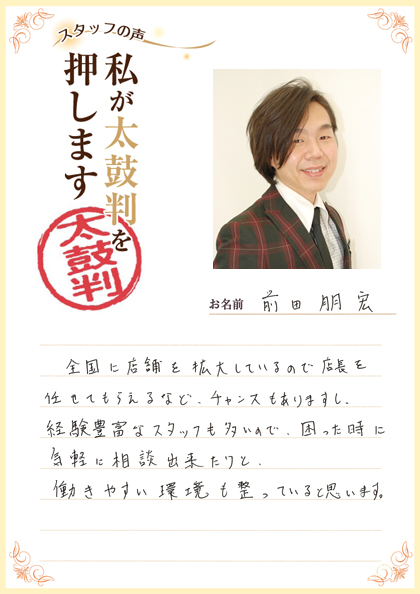 スタッフの声
私が太鼓判を
押します
太鼓判
お名前 前田 朋宏
全国に店舗を拡大しているので店長を
任せてもらえるなど、チャンスもありますし、
経験豊富なスタッフも多いので、困った時に
気軽に相談出来たりと、
働きやすい環境も整っていると思います。